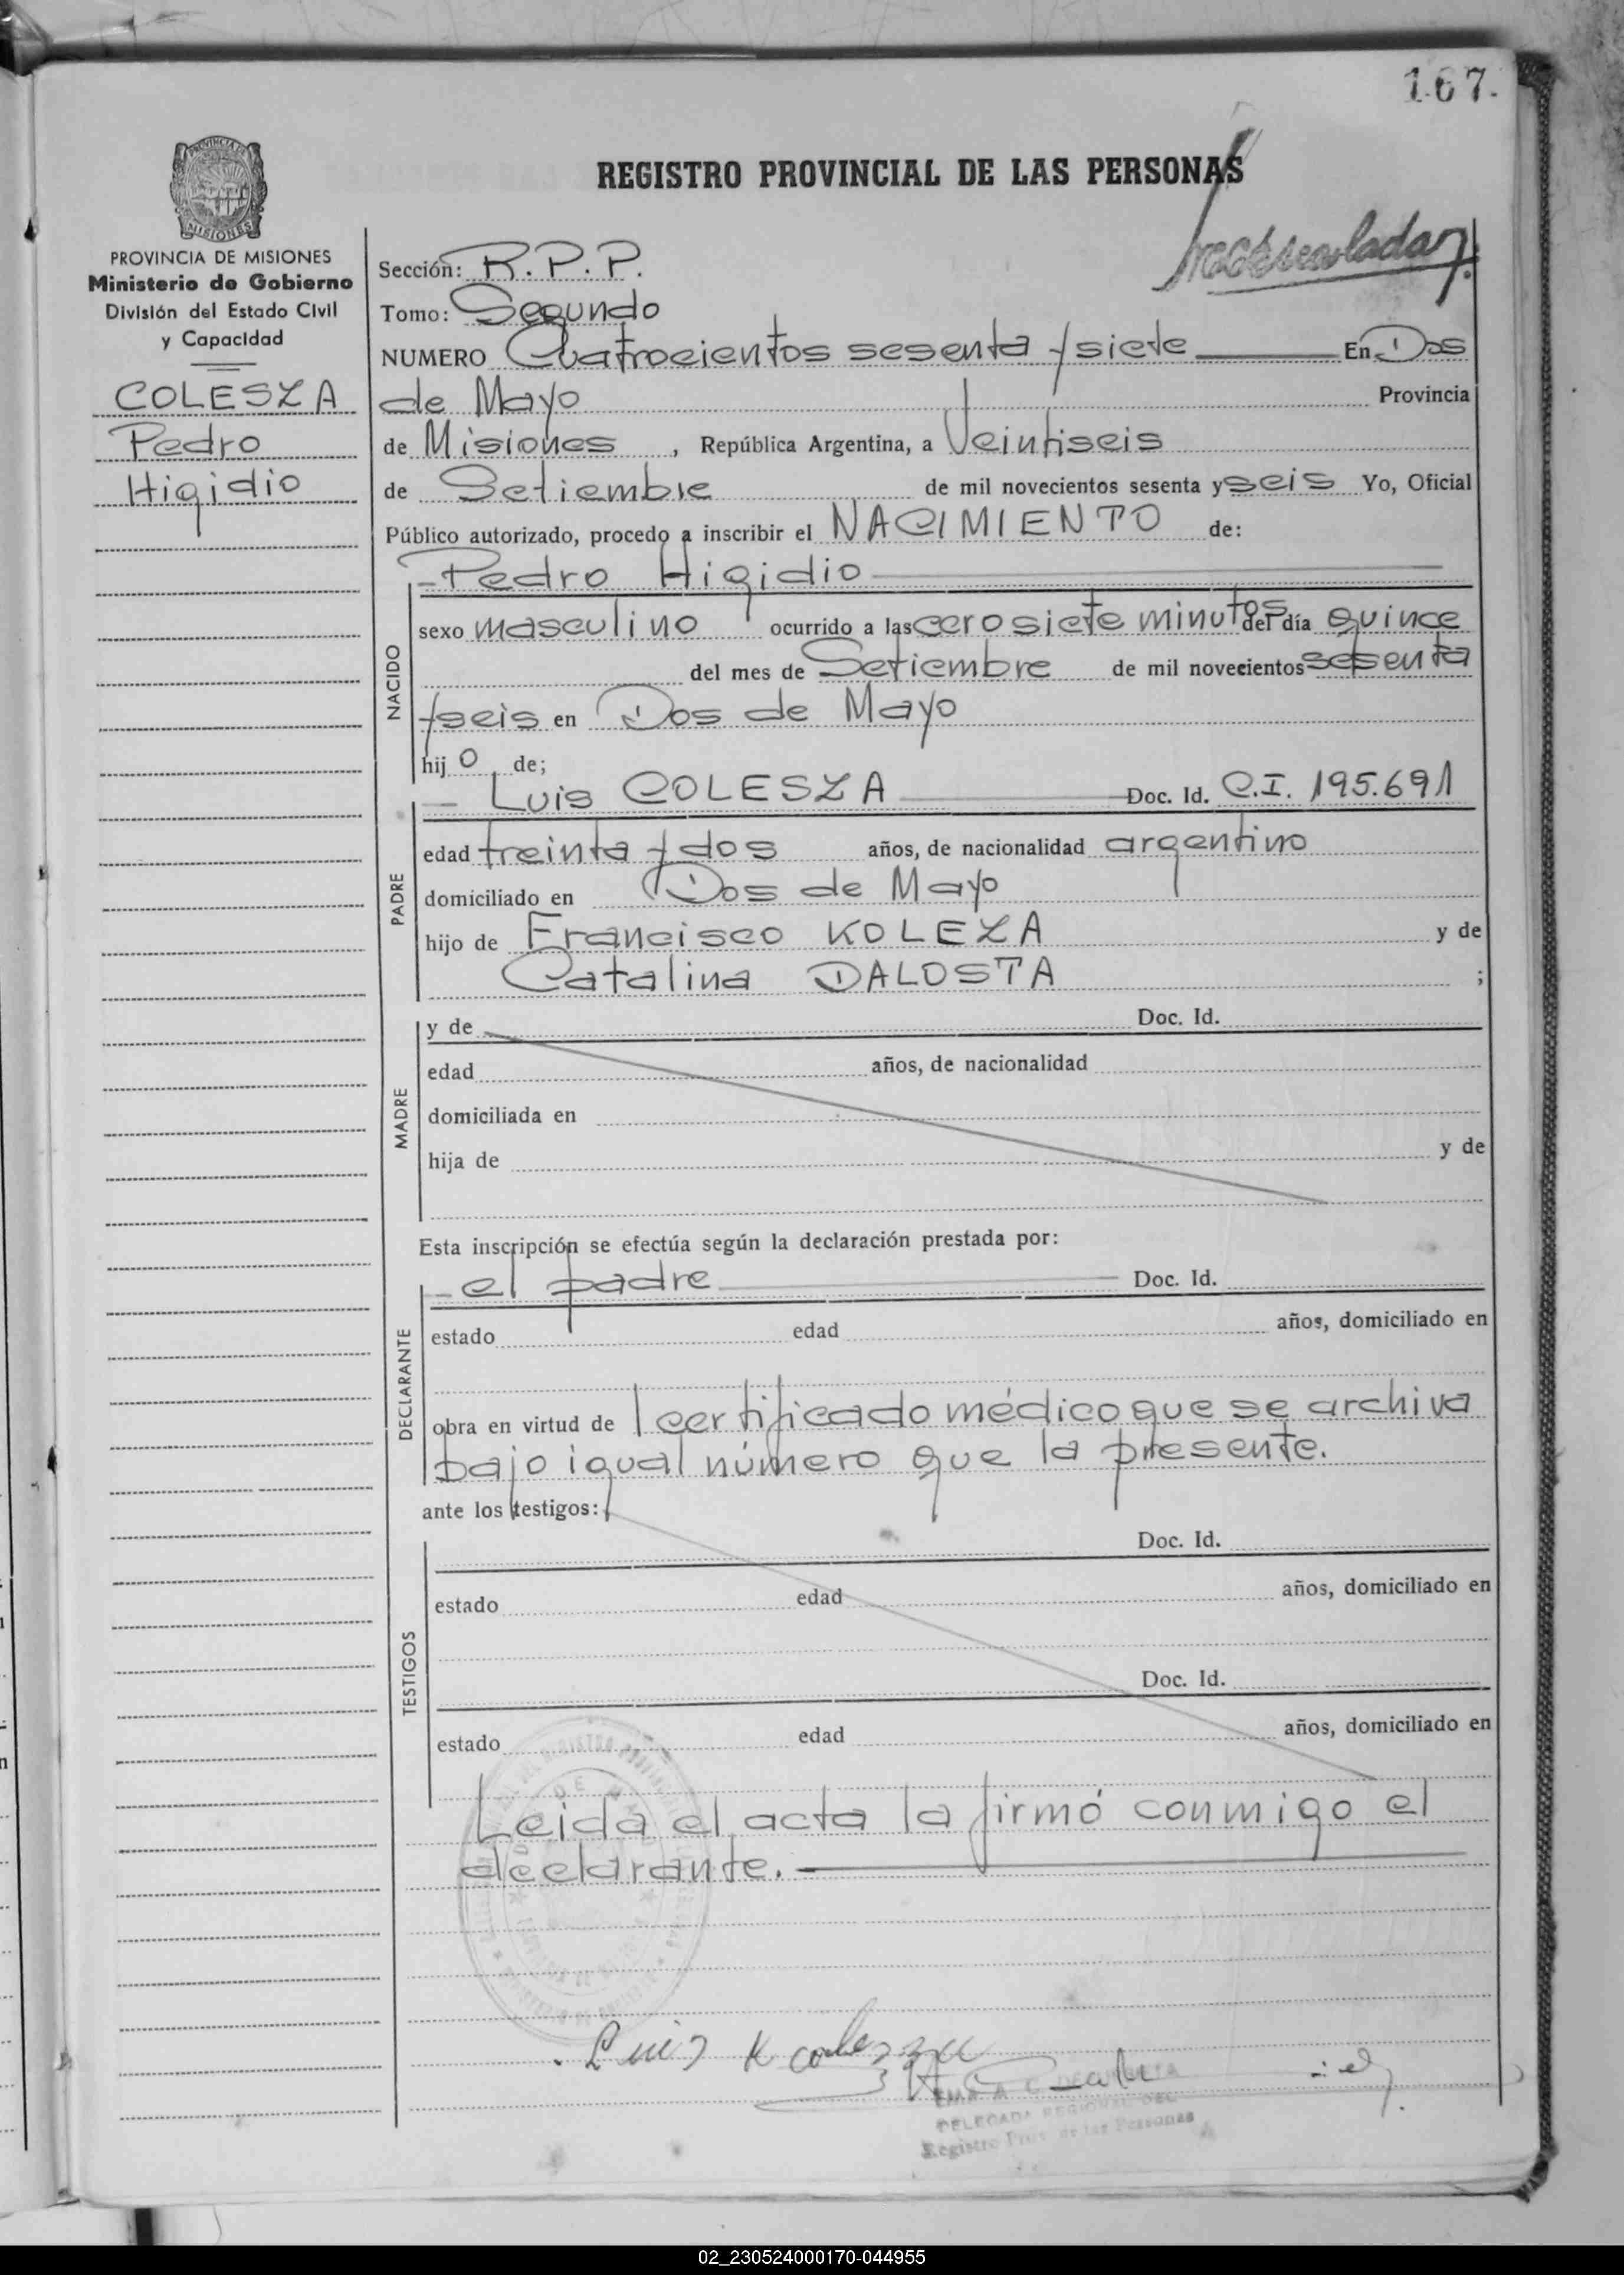 167.
PROVINCIA DE MISIONES
REGISTRO PROVINCIAL DE LAS PERSONAS
PROVINCIA DE MISIONES
Ministerio de Gobierno
División del Estado Civil
y Capacidad
COLESZA
Pedro
Higidio
Sección: R.P.P.
Tomo: Segundo
NUMERO Cuatrocientos sesenta y siete En Dos
de Mayo Provincia
de Misiones , República Argentina, a Veintiseis
de Setiembre de mil novecientos sesenta y seis Yo, Oficial
Público autorizado, procedo a inscribir el NACIMIENTO de:
Pedro Higidio
NACIDO
sexo masculino ocurrido a las cero siete minutos del día quince
del mes de Setiembre de mil novecientos sesenta
y seis en Dos de Mayo
hij o de;
PADRE
Luis COLESZA Doc. Id. C.I. 195.691
edad treinta y dos años, de nacionalidad argentino
domiciliado en Dos de Mayo
hijo de Francisco KOLEZA y de
Catalina DALOSTA ;
MADRE
y de Doc. Id.
edad años, de nacionalidad
domiciliada en
hija de y de
Esta inscripción se efectúa según la declaración prestada por:
DECLARANTE
el padre Doc. Id.
estado edad años, domiciliado en
obra en virtud de l certificado médico que se archiva
bajo igual número que la presente.
ante los testigos:
TESTIGOS
Doc. Id.
estado edad años, domiciliado en
Doc. Id.
estado edad años, domiciliado en
Leida el acta la firmó conmigo el
declarante.
Luis K
DELEGADA REGIONAL DEL
Registro Prov. de las Personas
02_230524000170-044955